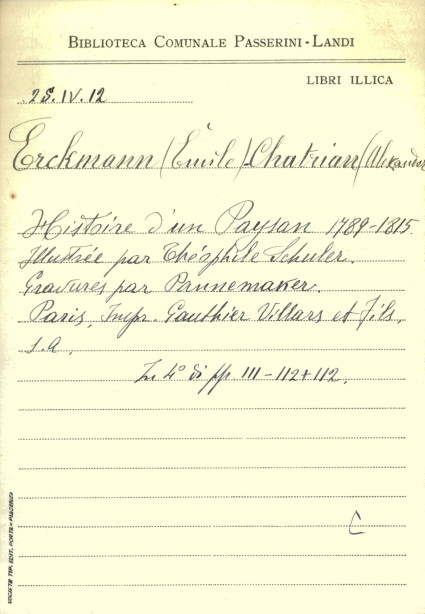 BIBLIOTECA COMUNALE PASSERINI-LANDI
LIBRI ILLICA
25.IV.12
Erckmann (Émile)-Chatrian (Alexander
Histoire d'un Paysan 1789-1815.
Illustrée par Théophile Schuler.
Gravures par Pannemaker.
Paris, Impr. Gauthier Villars et Fils,
s.a,
In 4° di pp. III-112+112,
C
SOCIETÀ TIP. EDIT. PORTA-PIACENZA